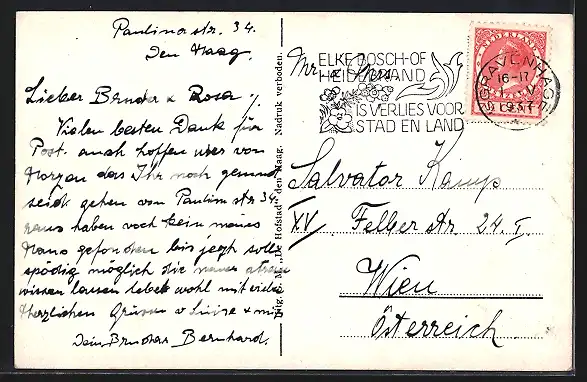 Paulina str. 34.
Den Haag.
Lieber Bruder & Rosa
Vielen besten Dank für
Post. auch hoffen wir von
Morgen das Ihr noch gesund
seid gehen von Paulina str 34.
raus haben noch kein neues
Haus gefonden bis jezt solls
möglich die neue
wissen lassen lebet wohl mit viele
Herzlichen Grüssen v Luise & mir
Dein Bruder Bernhard.
Uitg. M. „De Hofstad" den Haag. Nadruk verboden
ELKE BOSCH- OF
HEIDEBRAND
IS VERLIES VOOR
STAD EN LAND
NEDERLAND
'S GRAVENHAGE
16-17
1937
Mr. & Mrs.
Salvator Kamp
XV, Felber str 24. I.
Wien
Österreich.